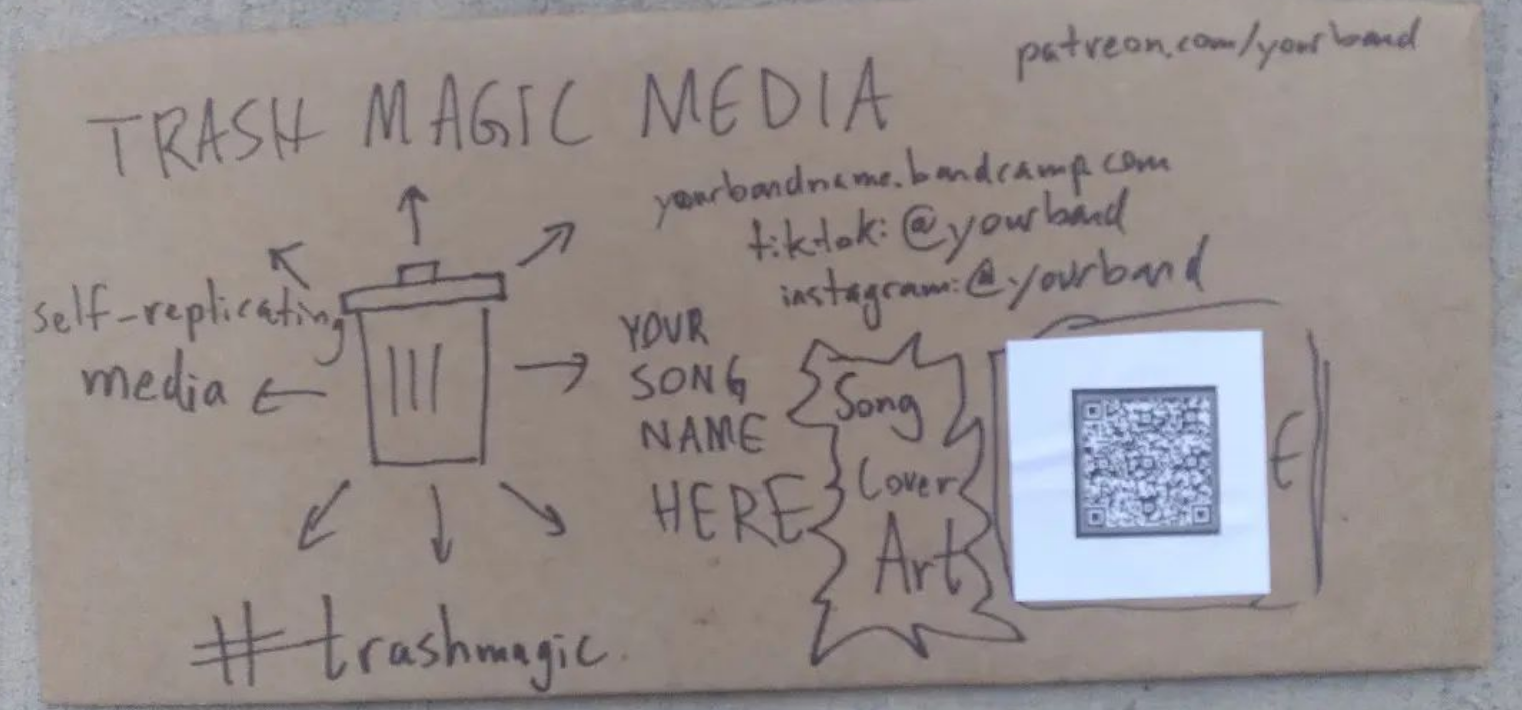 patreon.com/yourband
TRASH MAGIC MEDIA
yourbandname.bandcamp.com
tiktok: @yourband
instagram: @yourband
self-replicating
media
YOUR
SONG
NAME
HERE
Song
Cover
Art
E
#trashmagic